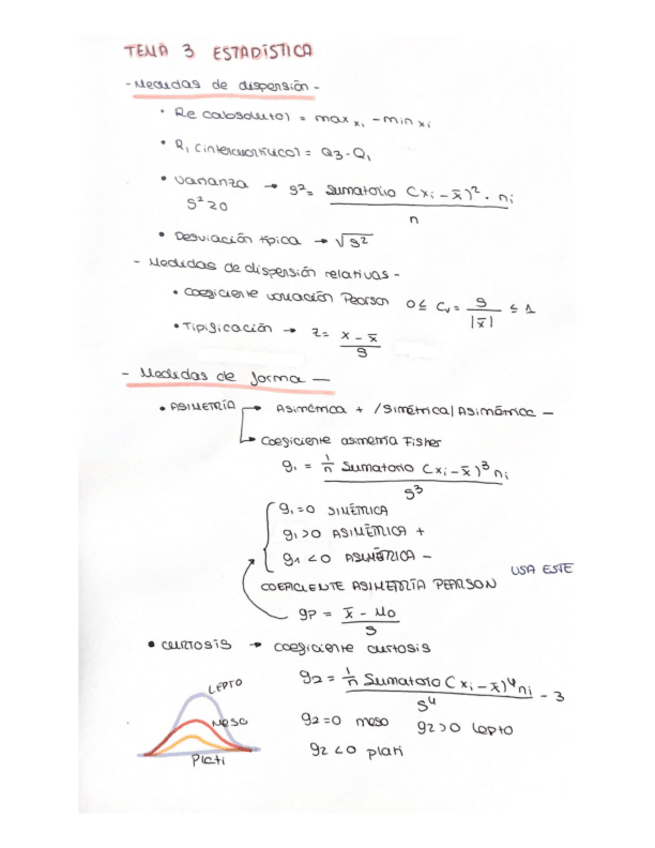 TEMA 3 ESTADÍSTICA
- Medidas de dispersión -
• Re (absoluto) = max xi - min xi
• Ri (intercuartílico) = Q3 - Q1
• Varianza → S² = Sumatorio (xi - x̄)² · ni / n
S² ≥ 0
• Desviación típica → √S²
- Medidas de dispersión relativas -
• Coeficiente variación Pearson 0 ≤ Cv = S / |x̄| ≤ 1
• Tipificación → Z = x - x̄ / S
- Medidas de forma -
• ASIMETRÍA → Asimétrica + / Simétrica / Asimétrica -
→ Coeficiente asimetría Fisher
g1 = 1/n Sumatorio (xi - x̄)³ ni / S³
g1 = 0 SIMÉTRICA
g1 > 0 ASIMÉTRICA +
g1 < 0 ASIMÉTRICA -
USA ESTE
COEFICIENTE ASIMETRÍA PEARSON
gP = x̄ - Mo / S
• CURTOSIS → coeficiente curtosis
g2 = 1/n Sumatorio (xi - x̄)⁴ ni / S⁴ - 3
LEPTO
MESO
Plati
g2 = 0 meso g2 > 0 lepto
g2 < 0 plati